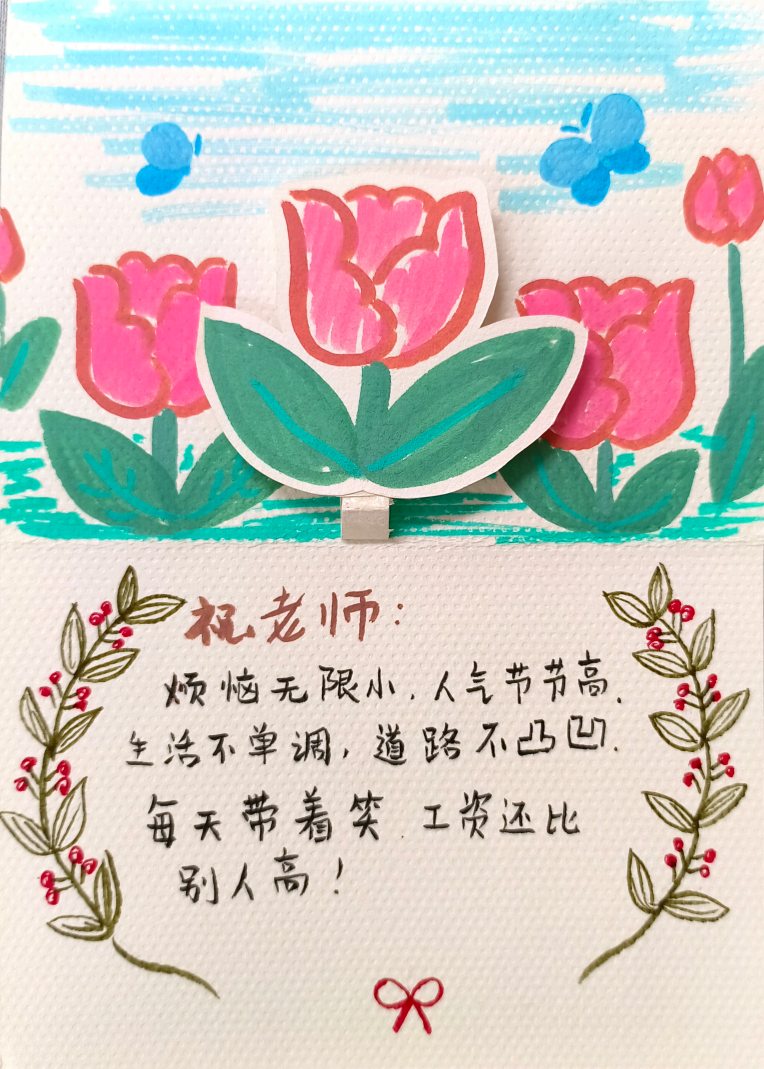 祝老师:
烦恼无限小.人气节节高.
生活不单调,道路不凸凹.
每天带着笑.工资还比
别人高!